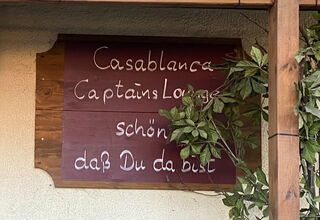 Casablanca
Captains Lounge
schön
daß Du da bist